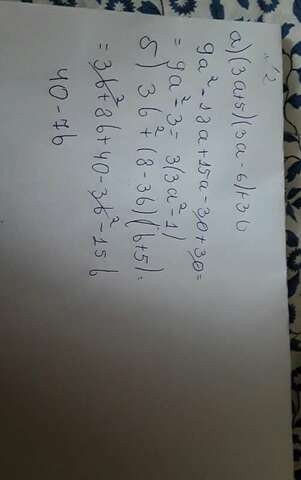 №2
а) (3a+5)(3a-6)+30
9a²-18a+15a-30+30=
=9a²-3= 3(3a²-1)
б) 3b²+(8-3b)(b+5)=
=3b²+8b+40-3b²-15b
40-7b